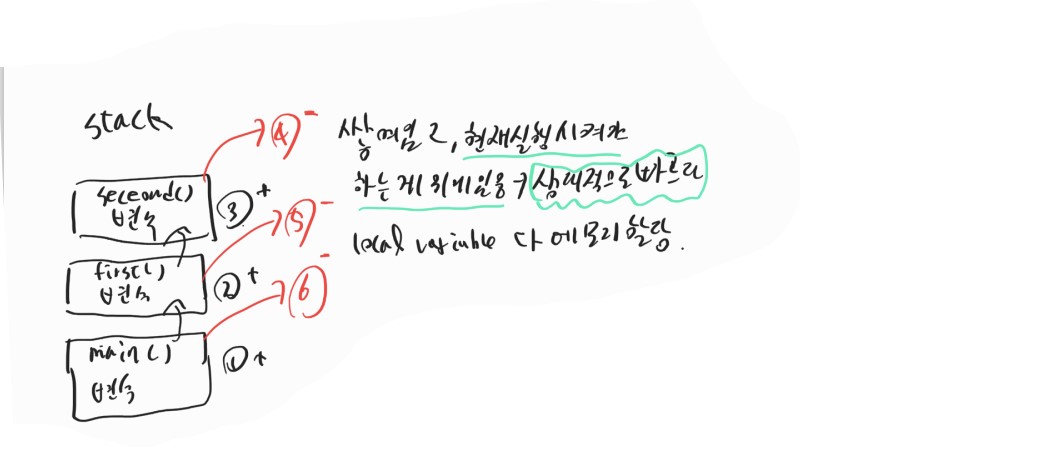 stack
④-
seceond()
변수
③+
⑤-
first()
변수
②+
⑥-
main()
변수
①+
현재실행시켜야
하는게 위에있음 → 상대적으로 빠르다
local variable 다 메모리할당.